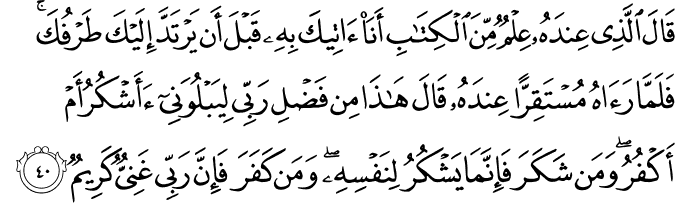 قَالَ ٱلَّذِى عِندَهُۥ عِلْمٌ مِّنَ ٱلْكِتَٰبِ أَنَا۠ ءَاتِيكَ بِهِۦ قَبْلَ أَن يَرْتَدَّ إِلَيْكَ طَرْفُكَ ۚ
فَلَمَّا رَءَاهُ مُسْتَقِرًّا عِندَهُۥ قَالَ هَٰذَا مِن فَضْلِ رَبِّى لِيَبْلُوَنِىٓ ءَأَشْكُرُ أَمْ
أَكْفُرُ ۖ وَمَن شَكَرَ فَإِنَّمَا يَشْكُرُ لِنَفْسِهِۦ ۖ وَمَن كَفَرَ فَإِنَّ رَبِّى غَنِىٌّ كَرِيمٌ ٤٠